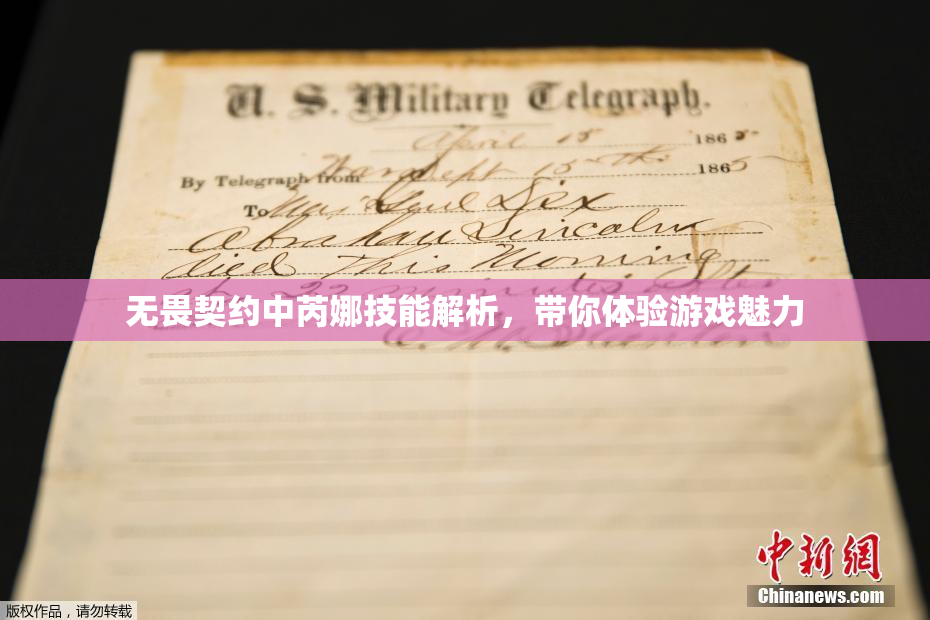 U. S. Military Telegraph.
April 15 1865
By Telegraph from War Dept 15th 1865
To Maj Genl Dix
Abraham Lincoln
died This Morning
at 22 minutes after
无畏契约中芮娜技能解析，带你体验游戏魅力
E. M. Stanton
中新网
Chinanews.com
版权作品，请勿转载